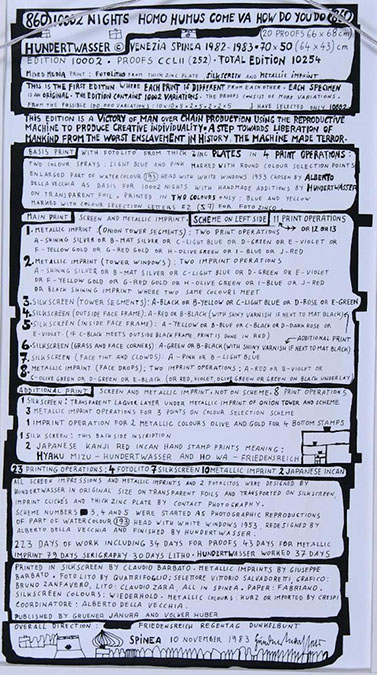 860 10002 NIGHTS HOMO HUMUS COME VA HOW DO YOU DO 860
(20 PROOFS 66 x 68 cm)
HUNDERTWASSER © VENEZIA SPINEA 1982-1983 • 70 x 50 (64 x 43) cm
EDITION 10002 • PROOFS CCLII (252) • TOTAL EDITION 10254
MIXED MEDIA PRINT: FOTOLITHO FROM THICK ZINC PLATE SILKSCREEN AND METALLIC IMPRINT
THIS IS THE FIRST EDITION WHERE EACH PRINT IS DIFFERENT FROM EACH OTHER • EACH SPECIMEN
IS AN ORIGINAL • THE EDITION CONTAINS 10002 VARIATIONS. THE PROOFS CONSIST OF MORE VARIATIONS.
FROM THE POSSIBLE VARIATIONS I HAVE SELECTED ONLY 10002
THIS EDITION IS A VICTORY OF MAN OVER CHAIN PRODUCTION USING THE REPRODUCTIVE
MACHINE TO PRODUCE CREATIVE INDIVIDUALITY • A STEP TOWARDS LIBERATION OF
MANKIND FROM THE WORST ENSLAVEMENT IN HISTORY. THE MACHINE MADE TERROR.
BASIS PRINT WITH FOTOLITO FROM THICK ZINC PLATES IN 4 PRINT OPERATIONS:
TWO COLOUR SPRAYS: LIGHT BLUE AND PINK MARKED WITH ROUND COLOUR SELECTION POINTS
ENLARGED PART OF WATERCOLOUR 193 HEAD WITH WHITE WINDOWS 1953 CHOSEN BY ALBERTO
DELLA VECCHIA AS BASIS FOR 10002 NIGHTS WITH HANDMADE ADDITIONS BY HUNDERTWASSER
ON TRANSPARENT FOIL. PRINTED IN TWO COLOURS ONLY: BLUE AND YELLOW
MARKED WITH COLOUR SELECTION LETTERS FOR FOTO ZINCO
MAIN PRINT SCREEN AND METALLIC IMPRINT: SCHEME ON LEFT SIDE 11 PRINT OPERATIONS
OR 12 OR 13
1. METALLIC IMPRINT (ONION TOWER SEGMENTS); TWO PRINT OPERATIONS
A-SHINING SILVER OR B-MAT SILVER OR C-LIGHT BLUE OR D-GREEN OR E-VIOLET OR
F-YELLOW GOLD OR G-RED GOLD OR H-OLIVE GREEN OR I-BLUE OR J-RED
2. METALLIC IMPRINT (TOWER WINDOWS); TWO IMPRINT OPERATIONS
A-SHINING SILVER OR B-MAT SILVER OR C-LIGHT BLUE OR D-GREEN OR E-VIOLET
OR F-YELLOW GOLD OR G-RED GOLD OR H-OLIVE GREEN OR I-BLUE OR J-RED
OR BLACK SHINING IMPRINT WHERE TWO SAME COLOURS MEET
3. SILKSCREEN (TOWER SEGMENTS): A-BLACK OR B-YELLOW OR C-LIGHT BLUE OR D-ROSE OR E-GREEN
4. SILKSCREEN (OUTSIDE FACE FRAME): A-RED OR B-BLACK (WITH SHINY VARNISH IF NEXT TO MAT BLACK)
5. SILKSCREEN (INSIDE FACE FRAME): A-YELLOW OR B-BLUE OR C-BLACK OR D-DARK ROSE OR
E-VIOLET (IF C-BLACK MEETS OUTSIDE BLACK FRAME PRINT IS DONE IN RED) ADDITIONAL PRINT
6. SILKSCREEN (GRASS AND FACE CORNERS) A-GREEN OR B-BLACK (WITH VARNISH IF NEXT TO MAT BLACK)
7. SILKSCREEN (FACE TINT AND CLOUDS): A-PINK OR B-LIGHT BLUE
8. METALLIC IMPRINT (FACE DROPS); TWO IMPRINT OPERATIONS; A-RED OR B-VIOLET OR
C-OLIVE GREEN OR D-GREEN OR E-BLACK (OR RED, VIOLET, OLIVE GREEN OR GREEN ON BLACK UNDERLAY
ADDITIONAL PRINT SCREEN AND METALLIC IMPRINT • NOT ON SCHEME • 8 PRINT OPERATIONS
1 SILKSCREEN: TRANSPARENT LAQUER LAYER UNDER METALLIC IMPRINT OF ONION TOWER AND SCHEME.
3 METALLIC IMPRINT OPERATIONS FOR 3 POINTS ON COLOUR SELECTION SCHEME
1 IMPRINT OPERATION FOR 2 METALLIC COLOURS OLIVE AND GOLD FOR 4 BOTTOM STAMPS
1 SILK SCREEN: THIS BACKSIDE INSCRIPTION
2 JAPANESE KANJI RED INCAN HAND STAMP PRINTS MEANING:
HYAKU MIZU - HUNDERTWASSER AND HO WA - FRIEDENSREICH
23 PRINTING OPERATIONS: 4 FOTOLITO 7 SILKSCREEN 10 METALLIC IMPRINT 2 JAPANESE INCAN
ALL SCREEN IMPRESSIONS AND METALLIC IMPRINTS AND 2 FOTOLITOS WERE DESIGNED BY
HUNDERTWASSER IN ORIGINAL SIZE ON TRANSPARENT FOILS AND TRANSPORTED ON SILKSCREEN,
IMPRINT CLICHÉS AND THICK ZINC PLATE BY CONTACT PHOTOGRAPHY.
SCHEME NUMBERS 3, 4 AND 5 WERE STARTED AS PHOTOGRAPHIC REPRODUCTIONS
OF PART OF WATERCOLOUR 193 HEAD WITH WHITE WINDOWS 1953, REDESIGNED BY
ALBERTO DELLA VECCHIA AND FINISHED BY HUNDERTWASSER.
223 DAYS OF WORK INCLUDING 34 DAYS FOR PROOFS 43 DAYS FOR METALLIC
IMPRINT 79 DAYS SERIGRAPHY 30 DAYS LITHO • HUNDERTWASSER WORKED 37 DAYS
PRINTED IN SILKSCREEN BY CLAUDIO BARBATO • METALLIC IMPRINTS BY GIUSEPPE
BARBATO • FOTOLITO BY QUATRIFOGLIO; SELETTORE VITTORIO SALVADORETTI; GRAFICO:
BRUNO ZANFAVERO, LITO: CLAUDIO ZARA, ALL IN SPINEA. PAPER: FABRIANO.
SILKSCREEN COLOURS: WIEDERHOLD • METALLIC COLOURS: KURZ OR IMPORTED BY CRISPI
COORDINATORE: ALBERTO DELLA VECCHIA.
PUBLISHED BY GRUENER JANURA AND VOLKER HUBER
OVERALL DIRECTION: FRIEDENSREICH REGENTAG DUNKELBUNT
SPINEA 10 NOVEMBER 1983